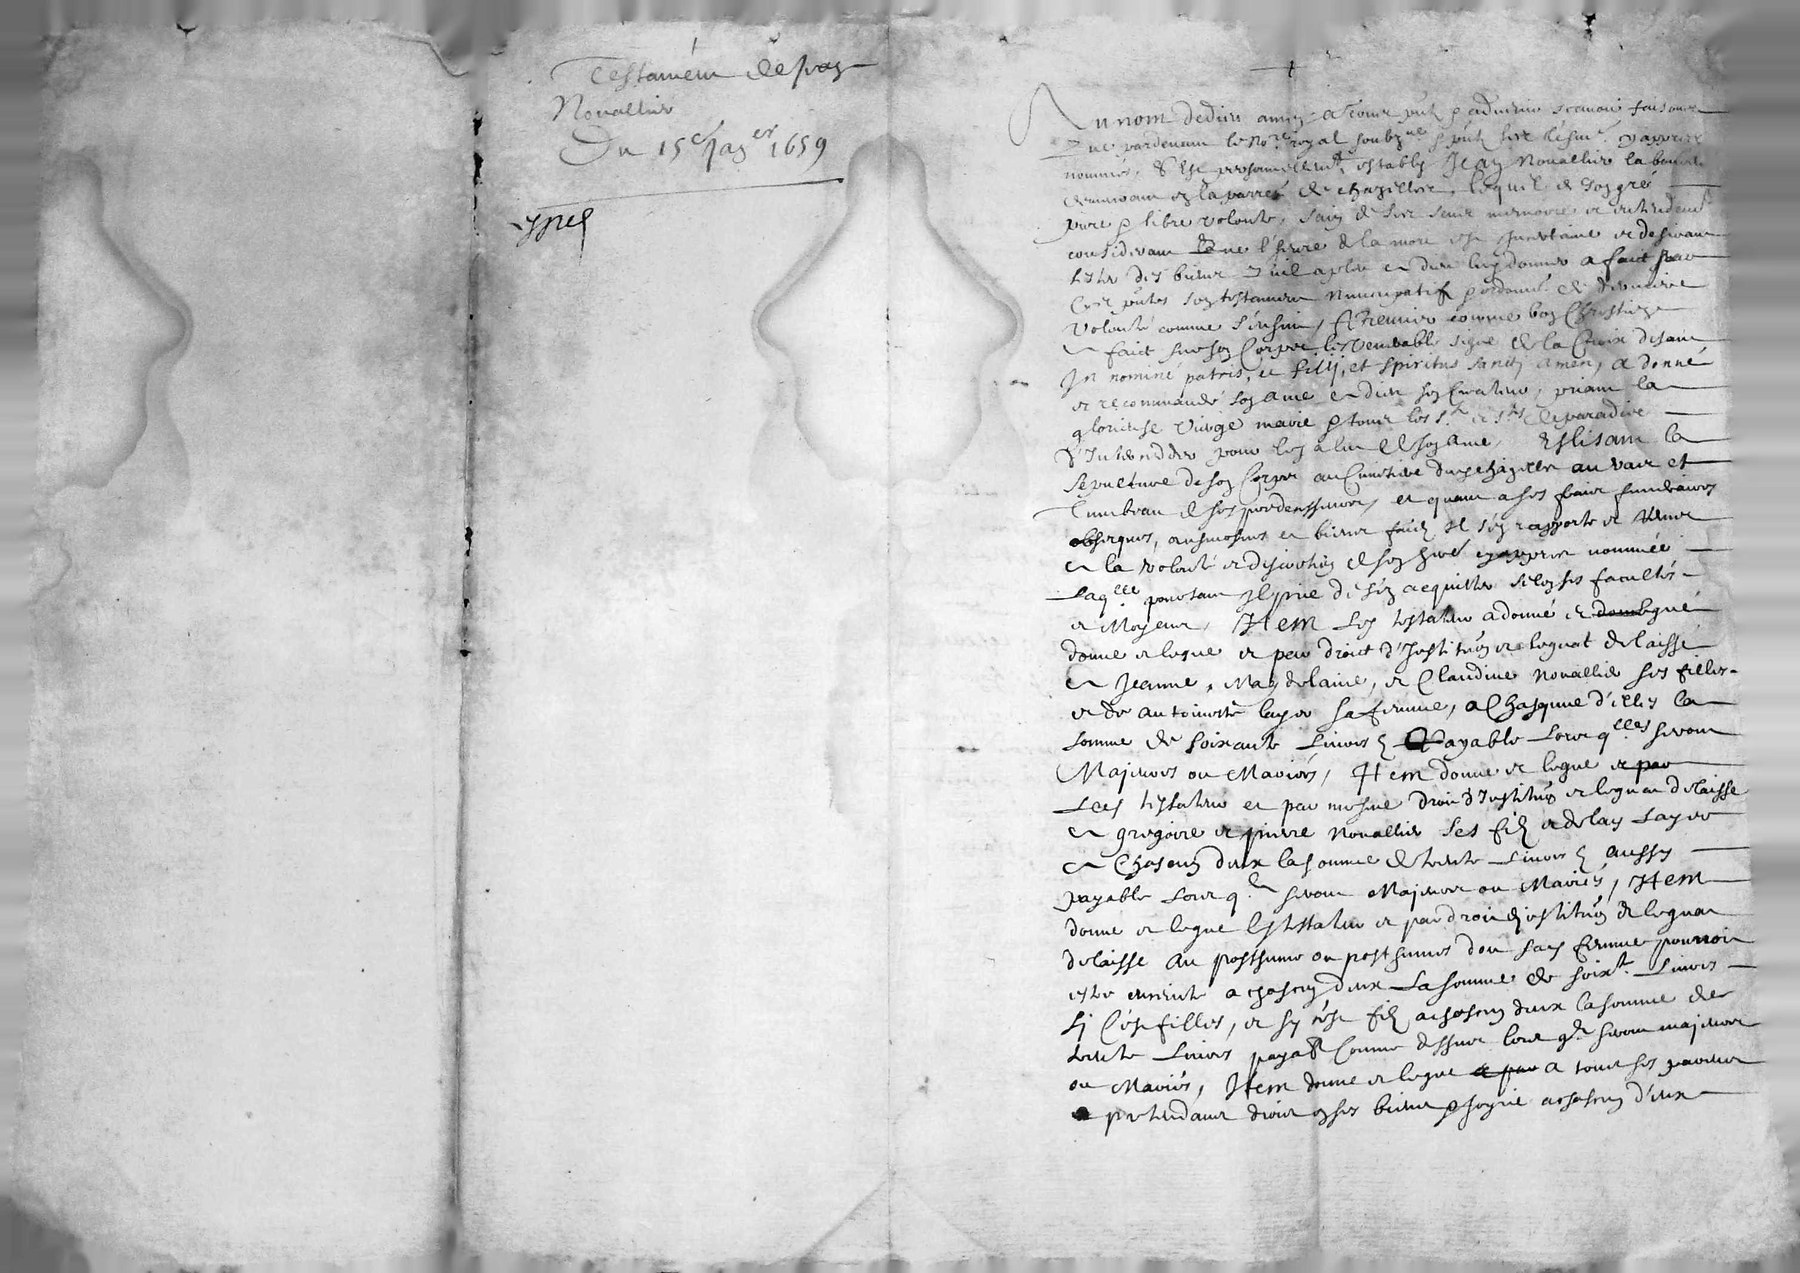 Testament de Jean
Nouallier
Du 15e Jager 1659
Au nom de dieu amen a tous faisons
que pardevant le nore royal soubzne
nommés, estably Jean Nouallier
en la parre de lequel de son gré
pure & libre volonté, sain de memoire et
considerant que l'heure de la mort est incertaine et desirant
des biens qu'il a pleu a dieu luy donner a faict
son testament nuncupatif & derniere
volonté comme s'ensuit, Premier comme bon Chrestien
faict sur son Corps le venerable signe de la Croix disant
In nomine patris, et filij, et spiritus sancti amen, a donné
et recommandé son ame a dieu son Createur, priant la
glorieuse vierge marie & tous les sts et stes de paradis
d'Interceder pour le salut de son ame, Eslisant la
sepulture de son Corps au Cimetiere dud au vas et
tumbeau de ses predecesseurs, et quant a ses frais funeraires
obseques, ausmosnes et biens faicts Il s'en rapporte et remet
a la volonté et discretion de son here cy appres nommée
Laqlle pourtant Il prie de s'en acquitter selon ses facultés
et Moyens, Item Led testateur a donné et legué
donne et legue et par droict d'Institution et legat delaisse
a Jeanne, Magdelaine, et Claudine Nouallier ses filles
et de antoinette sa femme, a Chasqune d'elles la
somme de soixante Livres Payable Lors qlles seront
Majeures ou Mariées, Item donne et legue et par
Led testateur et par mesme droict d'Institution et legat delaisse
a gregoire et pierre Nouallier ses filz et de lad
a Chascun deux la somme de trente Livres aussy
payable Lors qls seront Majeurs ou Mariés, Item
donne et legue led testateur et par droict d'institution et legat
delaisse au posthume ou posthumes dont sad femme pourroit
estre enceinte a chascun deux La somme de soixte Livres
sy c'est filles, et sy c'est filz a chascun deux la somme de
trente Livres payable Comme dessus lors qls seront majeurs
ou Mariés, Item donne et legue a tous ses parents
pretendants droict en ses biens a chascun d'eux